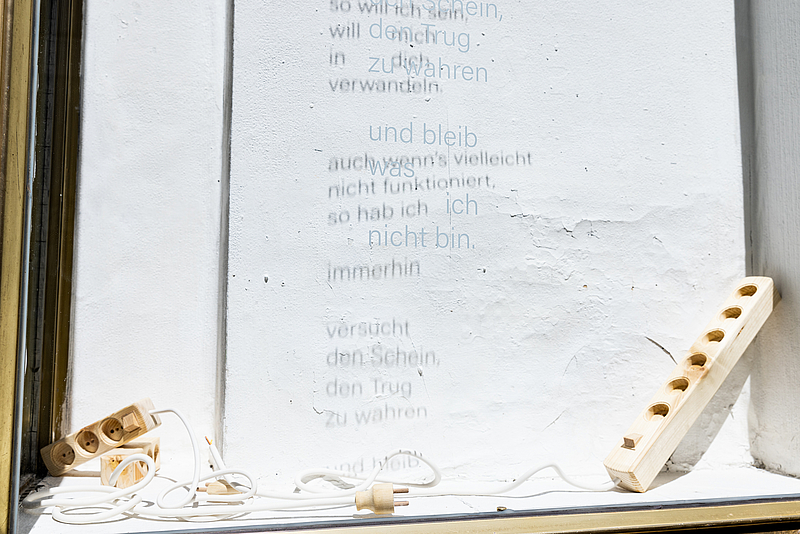 so will ich sein,
will mich
in dich
verwandeln.
auch wenn's vielleicht
nicht funktioniert,
so hab ich
immerhin
versucht
den Schein,
den Trug
zu wahren
und bleib
Schein,
den Trug
zu wahren
und bleib
was
ich
nicht bin.